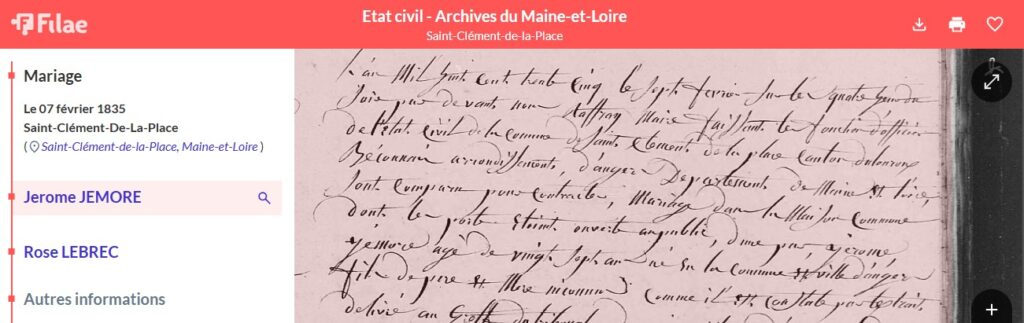 Filae
Etat civil - Archives du Maine-et-Loire
Saint-Clément-de-la-Place
Mariage
Le 07 février 1835
Saint-Clément-De-La-Place
( Saint-Clément-de-la-Place, Maine-et-Loire )
Jerome JEMORE
Rose LEBREC
Autres informations
L'an Mil huit cent trente cinq le Sept fevrier sur les quatre heures du
Soir par devant nous Raffray Maire faisant les fonction d'officier
de l'Etat Civil de la commune de Saint Clement de la place canton du Louroux
Béconnais arrondissement d'angers Departement de Maine et Loire,
Sont Comparu pour contracter Mariage dans la Maison Commune
dont les porte Etoient ouverte au public, d'une part jerome
jemore agé de vingt Sept ans né En la Commune et ville d'angers
fils de pere et Mere inconnu Comme il Est Constaté par l'extrait
delivré au Greffe du tribunal